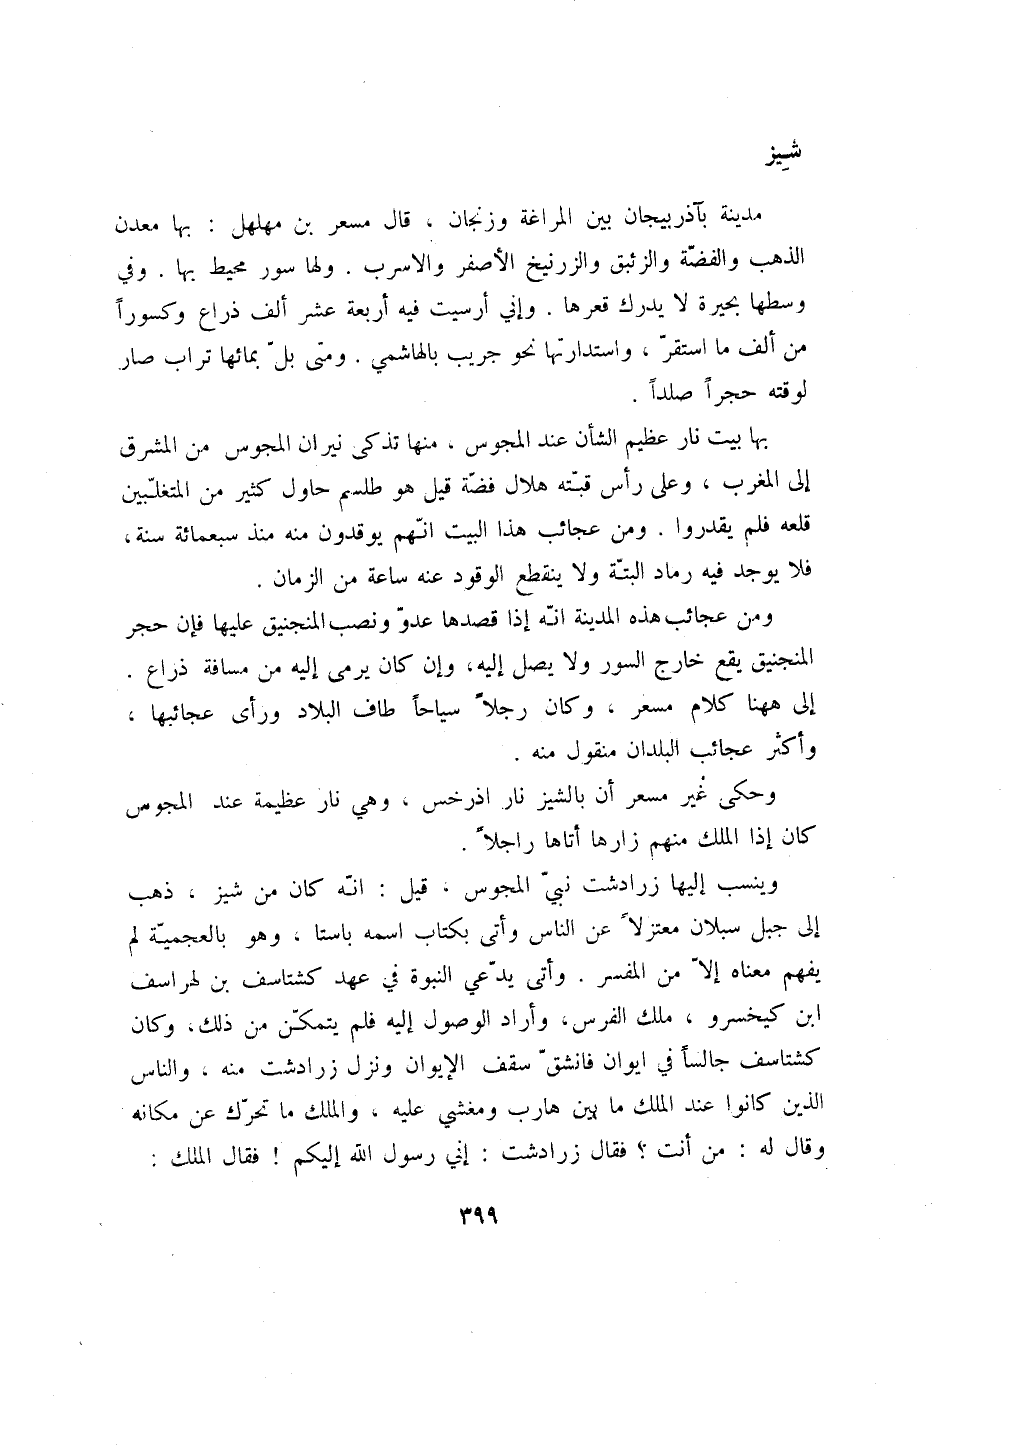 شِيز
مدينة بآذربيجان بين المراغة وزنجان ، قال مسعر بن مهلهل : بها معدن
الذهب والفضّة والزئبق والزرنيخ الأصفر والاسرب . ولها سور محيط بها . وفي
وسطها بحيرة لا يدرك قعرها . وإني أرسيت فيه أربعة عشر ألف ذراع وكسوراً
من ألف ما استقرّ ، واستدارتها نحو جريب بالهاشمي . ومتى بلّ بمائها تراب صار
لوقته حجراً صلداً .
بها بيت نار عظيم الشأن عند المجوس ، منها تذكى نيران المجوس من المشرق
إلى المغرب ، وعلى رأس قبّته هلال فضّة قيل هو طلسم حاول كثير من المتغلّبين
قلعه فلم يقدروا . ومن عجائب هذا البيت انّهم يوقدون منه منذ سبعمائة سنة ،
فلا يوجد فيه رماد البتّة ولا ينقطع الوقود عنه ساعة من الزمان .
ومن عجائب هذه المدينة انّه إذا قصدها عدوّ ونصب المنجنيق عليها فإن حجر
المنجنيق يقع خارج السور ولا يصل إليه، وإن كان يرمى إليه من مسافة ذراع .
إلى ههنا كلام مسعر ، وكان رجلاً سياحاً طاف البلاد ورأى عجائبها ،
وأكثر عجائب البلدان منقول منه .
وحكى غير مسعر أن بالشيز نار اذرخس ، وهي نار عظيمة عند المجوس
كان إذا الملك منهم زارها أتاها راجلاً .
وينسب إليها زرادشت نبيّ المجوس ، قيل : انّه كان من شيز ، ذهب
إلى جبل سبلان معتزلاً عن الناس وأتى بكتاب اسمه باستا ، وهو بالعجميّة لم
يفهم معناه إلاّ من المفسر . وأتى يدّعي النبوة في عهد كشتاسف بن لهراسف
ابن كيخسرو ، ملك الفرس، وأراد الوصول إليه فلم يتمكّن من ذلك، وكان
كشتاسف جالساً في ايوان فانشقّ سقف الإيوان ونزل زرادشت منه ، والناس
الذين كانوا عند الملك ما بين هارب ومغشي عليه ، والملك ما تحرّك عن مكانه
وقال له : من أنت ؟ فقال زرادشت : إني رسول الله إليكم ! فقال الملك :
٣٩٩